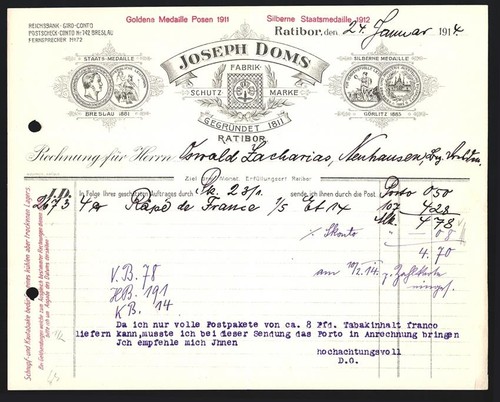 REICHSBANK-GIRO-CONTO
POSTSCHECK-CONTO Nr. 742 BRESLAU
FERNSPRECHER Nr. 72
Goldene Medaille Posen 1911
Silberne Staatsmedaille 1912
Ratibor, den 24. Januar 1914
STAATS-MEDAILLE
BRESLAU 1881
JOSEPH DOMS
FABRIK-
SCHUTZ MARKE
GEGRÜNDET 1811
RATIBOR
SILBERNE MEDAILLE
GÖRLITZ 1885
Rechnung für Herrn Oswald Zacharias, Neuhausen,
Ziel Monat. Erfüllungsort Ratibor.
In Folge Ihres geschätzten Auftrages durch Pk. 23/1. sende ich Ihnen durch Post Porto 0 50
2673 4 Râpé de France 1/5 Et 14 107 4 28
Mk. 4 78
% Skonto 08
4.70
am 10/2.14. Zahlkarte
V.B. 78
HB. 191
KB. 14
Da ich nur volle Postpakete von ca. 8 Pfd. Tabakinhalt franco
liefern kann, musste ich bei dieser Sendung das Porto in Anrechnung bringen
Jch empfehle mich Jhnen
hochachtungsvoll
D.O.
Schnupf- und Kautabake bedürfen eines kühlen aber trockenen Lagers.